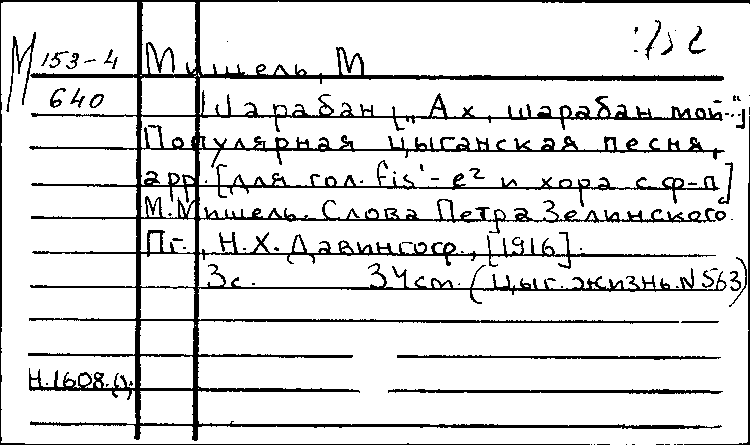 М 153-4 Мишель, М
640 Шарабан [„Ах, шарабан мой..."]
Популярная цыганская песня,
арр. [для гол. fis'-e² и хора с ф-п]
М. Мишель. Слова Петра Зелинского.
Пг., Н.Х. Давингоф, [1916].
3с. 34см. (Цыг. жизнь. N 563)
Н.1608.